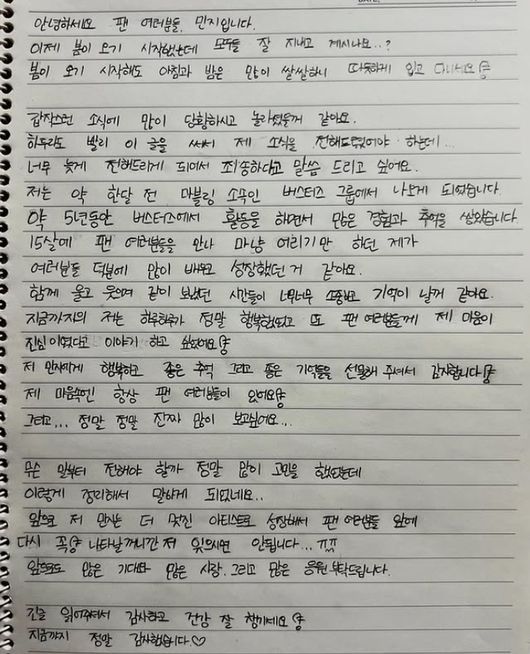 안녕하세요 팬 여러분들, 민지입니다.
이제 봄이 오기 시작했는데 모두들 잘 지내고 계시나요..?
봄이 오기 시작해도 아침과 밤은 많이 쌀쌀하니 따뜻하게 입고 다니세요
갑작스런 소식에 많이 당황하시고 놀라셨을거 같아요.
하루라도 빨리 이 글을 써서 제 소식을 전해드렸어야 하는데...
너무 늦게 전해드리게 되어서 죄송하다고 말씀 드리고 싶어요.
저는 약 한달 전 마블링 소속인 버스터즈 그룹에서 나오게 되었습니다.
약 5년동안 버스터즈에서 활동을 하면서 많은 경험과 추억을 쌓았습니다
15살에 팬 여러분들을 만나 마냥 어리기만 하던 제가
여러분들 덕분에 많이 배우고 성장했던 거 같아요.
함께 울고 웃으며 같이 보냈던 시간들이 너무너무 소중하고 기억이 날거 같아요.
지금까지의 저는 하루하루가 정말 행복했었고 또 팬 여러분들께 제 마음이
진심이었다고 이야기 하고 싶었어요
저 민지에게 행복하고 좋은 추억 그리고 좋은 기억들을 선물해 주셔서 감사합니다
제 마음속엔 항상 팬 여러분들이 있어요
그리고... 정말 정말 진짜 많이 보고싶어요...
무슨 말부터 전해야 할까 정말 많이 고민을 했었는데
이렇게 정리해서 말하게 되었네요..
앞으로 저 민지는 더 멋진 아티스트로 성장해서 팬 여러분들 앞에
다시 꼭 나타날꺼니깐 저 잊으시면 안됩니다... ㅠㅠ
앞으로도 많은 기대와 많은 사랑, 그리고 많은 응원 부탁드립니다.
긴글 읽어주셔서 감사하고 건강 잘 챙기세요
지금까지 정말 감사했습니다.♡